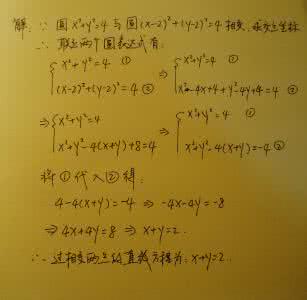 解: ∵ 圆x²+y²=4 与圆(x-2)²+(y-2)²=4 相交, 求交点坐标
∴ 联立两个圆表达式有:
{ x²+y²=4 ① ⇒ { x²+y²=4 ①
(x-2)²+(y-2)²=4 ② x²-4x+4+y²-4y+4=4 ②
⇒ { x²+y²=4 ⇒ { x²+y²=4 ①
x²+y²-4(x+y)+8=4 x²+y²-4(x+y)=-4 ②
将①代入②得:
4-4(x+y)=-4 ⇒ -4x-4y=-8
⇒ 4x+4y=8 ⇒ x+y=2.
∴ 过相交两点的直线方程为: x+y=2.